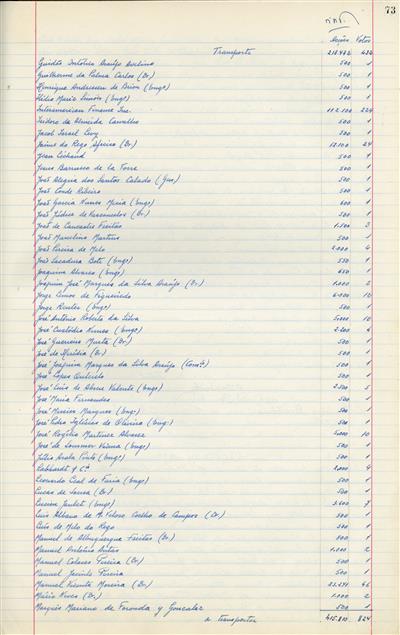 73
Acções Votos
Transporte 218.472 434
Guidão António Araújo Avelino 500 1
Guilherme da Palma Carlos (Dr.) 500 1
Henrique Andressen de Brion (Engº) 500 1
Hélio Mario Simões (Engº) 500 1
Interamerican Finance Inc. 112.100 224
Isidoro de Almeida Carvalho 500 1
Jacob Israel Levy 500 1
Jaime do Rego Afreixo (Dr.) 12.100 24
Jean 500 1
Jesus Barrueco de la Torre 500 1
João Alegria dos Santos Calado (Gen) 500 1
João Conde Ribeiro 500 1
João Garcia Nunes Mexia (Engº) 600 1
João Isidro de Vasconcelos (Dr.) 500 1
João de Lancastre Freitas 1.500 3
João Marcelino Martins 500 1
João Pereira de Melo 2.000 4
João Sacadura Bote (Engº) 550 1
Joaquim Alvares (Engº) 650 1
Joaquim José Marques da Silva Araújo (Dr.) 1.000 2
Jorge Lemos de Figueiredo 6.000 12
Jorge (Engº) 500 1
José António Roberto da Silva 5.000 10
José Custódio Nunes (Engº) 2.200 4
José Guerreiro Murta (Dr.) 500 1
José de (Dr.) 500 1
José Joaquim Marques da Silva Araújo 500 1
José Lopes 500 1
José Luis de Abreu Valente (Engº) 2.500 5
José Maria Fernandes 500 1
José Marcos Marques (Engº) 500 1
José Pedro Iglésias de Oliveira (Engº) 500 1
José Rogélio Martinez Alvarez 5.000 10
José de Sommer Viana (Engº) 500 1
Júlio Arala Pinto (Engº) 500 1
Labhardt & Cª 2.000 4
Leonardo Leal de Faria (Engº) 500 1
Lucas de Sousa (Dr.) 500 1
Lucien Jaubert (Engº) 3.600 7
Luis Albano de M. Veloso Coelho de Campos (Dr.) 500 1
Luis de Melo do Rego 500 1
Manuel de Albuquerque Freitas (Dr.) 500 1
Manuel António Antas 1.000 2
Manuel Colares Pereira (Dr.) 500 1
Manuel Jacinto Pereira 500 1
Manuel Vicente Moreira (Dr.) 46
Mário Neves (Dr.) 1.000 2
Marquês Mariano de Foronda y Gonzalez 500 1
a transportar 415.810 824